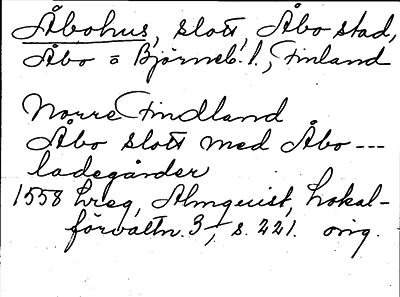 Åbohus, slott, Åbo stad,
Åbo o Björneb. l., Finland
Norre Findland
Åbo slott med Åbo ---
ladegårder
1558 Lreg, Almquist, Lokal-
förvaltn. 3, s. 221. orig.